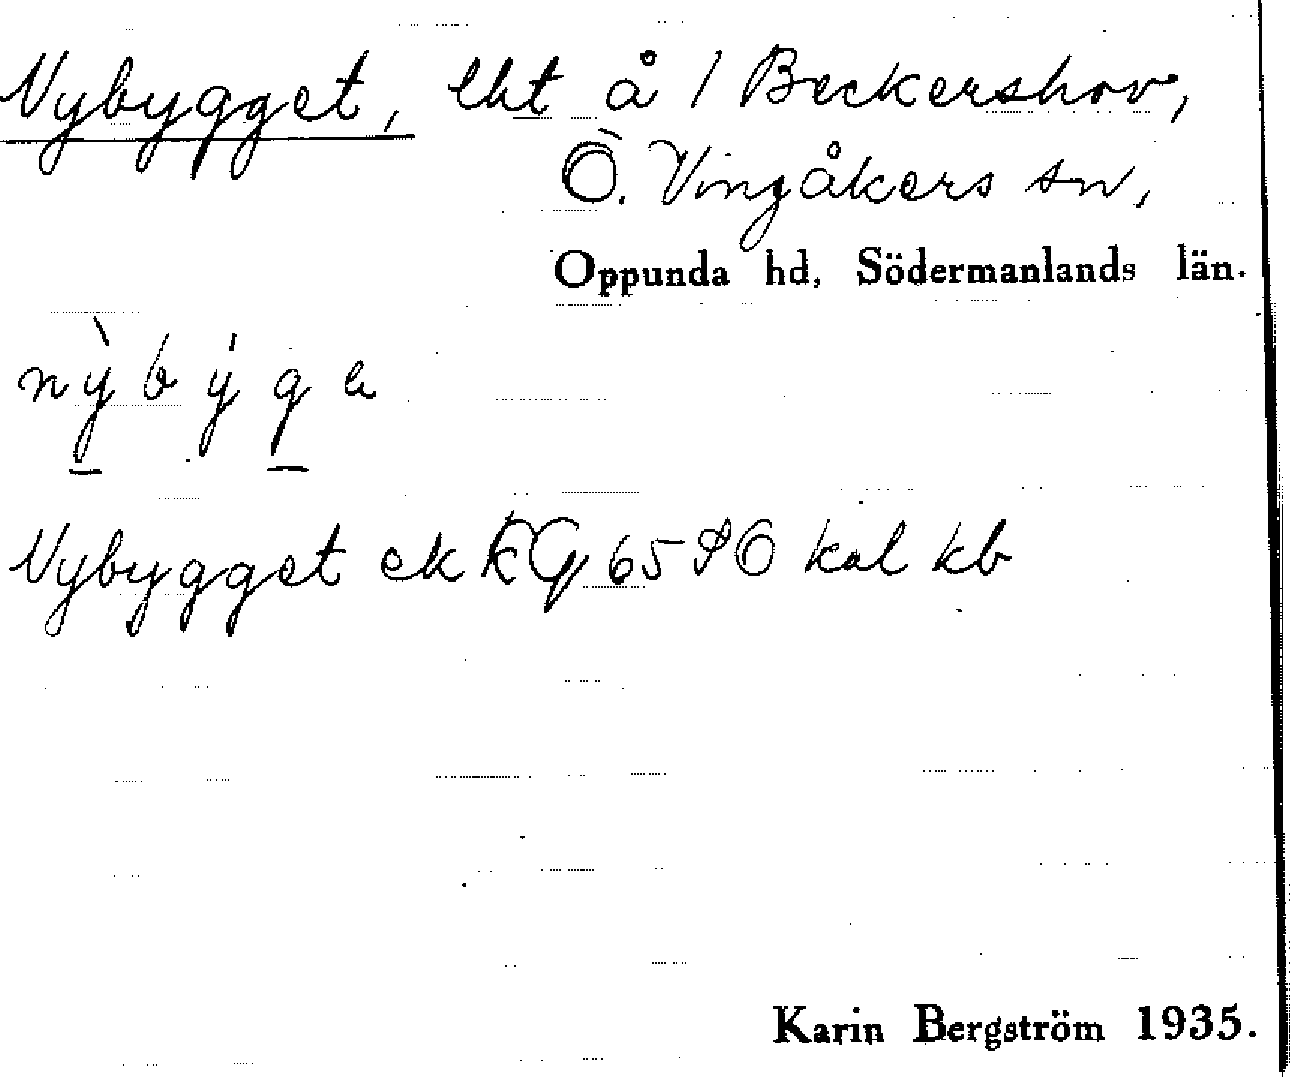 Nybygget, lht å 1 Beckershov,
Ö. Vingåkers sn,
Oppunda hd, Södermanlands län.
nỳbýga
Nybygget ek KG 65 SO kal kb
Karin Bergström 1935.